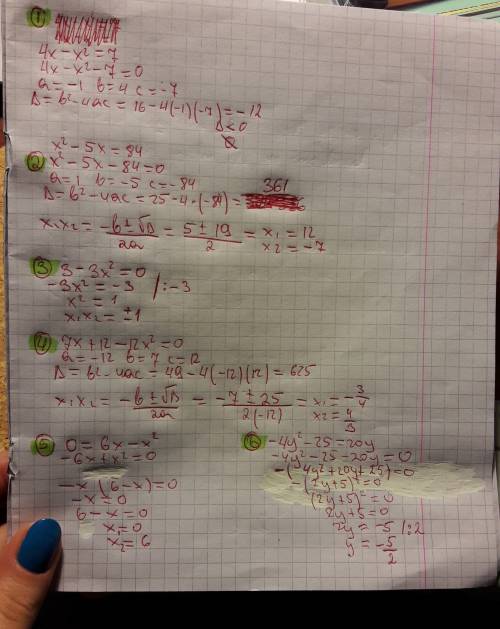 1
4x - x² = 7
4x - x² - 7 = 0
a = -1 b = 4 c = -7
D = b² - 4ac = 16 - 4(-1)(-7) = -12
D < 0
∅
x² - 5x = 84
2 x² - 5x - 84 = 0
a = 1 b = -5 c = -84
D = b² - 4ac = 25 - 4·(-84) = 361
x₁x₂ = -b ± √D / 2a = 5 ± 19 / 2 = x₁ = 12
x₂ = -7
3 3 - 3x² = 0
-3x² = -3 /: -3
x² = 1
x₁x₂ = ±1
4 7x + 12 - 12x² = 0
a = -12 b = 7 c = 12
D = b² - 4ac = 49 - 4(-12)(12) = 625
x₁x₂ = -b ± √D / 2a = -7 ± 25 / 2(-12) = x₁ = -3/4
x₂ = 4/3
5 0 = 6x - x²
-6x + x² = 0
-x (6 - x) = 0
-x = 0
6 - x = 0
x₁ = 0
x₂ = 6
6 -4y² - 25 = 20y
-4y² - 25 - 20y = 0
-(4y² + 20y + 25) = 0
-(2y + 5)² = 0
(2y + 5)² = 0
2y + 5 = 0
2y = -5 /: 2
y = -5/2